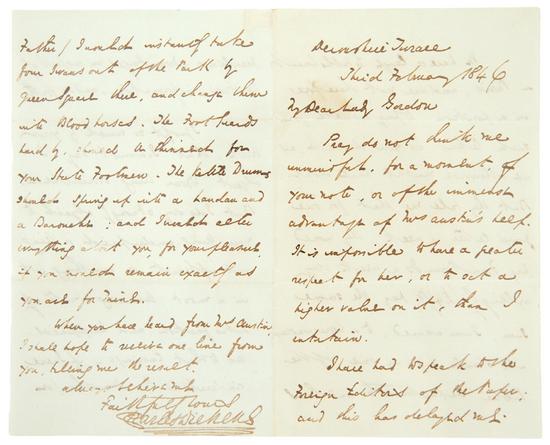 Devonshire Terrace
Third February 1846
My Dear Lady Gordon
Pray do not think me
unmindful, for a moment, of
your note, or of the immense
advantage of Mrs Austin's help.
It is impossible to have a greater
respect for her, or to set a
higher value on it, than I
entertain.
I have had to speak to the
Foreign Editors of the Paper;
and this has delayed me.
Father) I would instantly take
four Swans out of the Park by
Queen Square there, and change them
into Blood horses. The Foot Guards
hard by, should be thinned for
your State Footmen. The Kettle Drums
should spring up into a Landau and
a Barouche: and I would alter
everything about you, for your pleasure,
if you would remain exactly as
you are for mine.
When you have heard from Mrs Austin,
I shall hope to receive one line from
you, telling me the result.
always believe me
Faithfully Yours
Charles Dickens